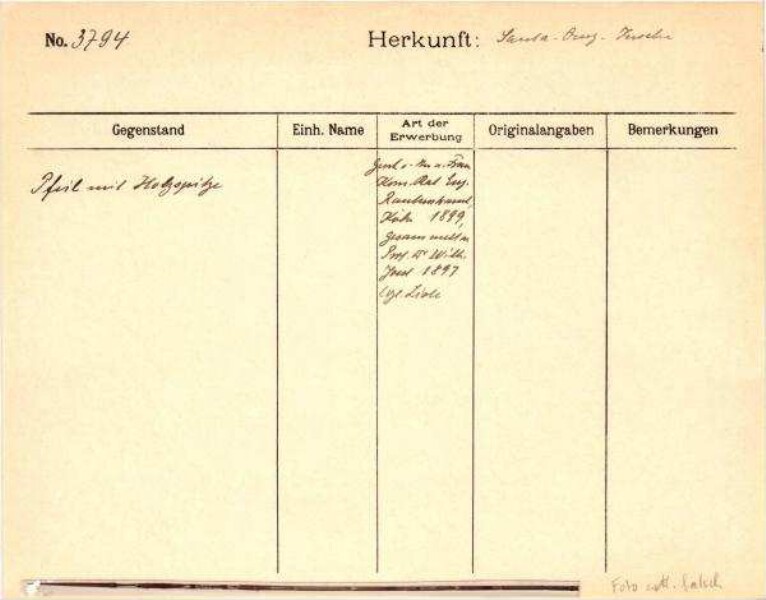 No. 3794
Herkunft: Santa-Cruz-Inseln
Gegenstand
Einh. Name
Art der Erwerbung
Originalangaben
Bemerkungen
Pfeil mit Holzspitze
Gesch. v. Frau
Kom. Rat Eug.
Rautenstrauch
Köln 1899,
gesammelt v.
Prof. Dr Wilh.
Joest 1897
Foto evtl. falsch